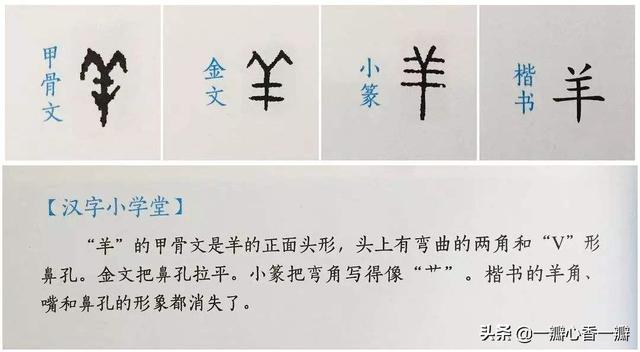 甲骨文
金文
小篆
楷书
羊
【汉字小学堂】
“羊”的甲骨文是羊的正面头形，头上有弯曲的两角和“V”形
鼻孔。金文把鼻孔拉平。小篆把弯角写得像“艹”。楷书的羊角、
嘴和鼻孔的形象都消失了。
头条@一瓣心香一瓣